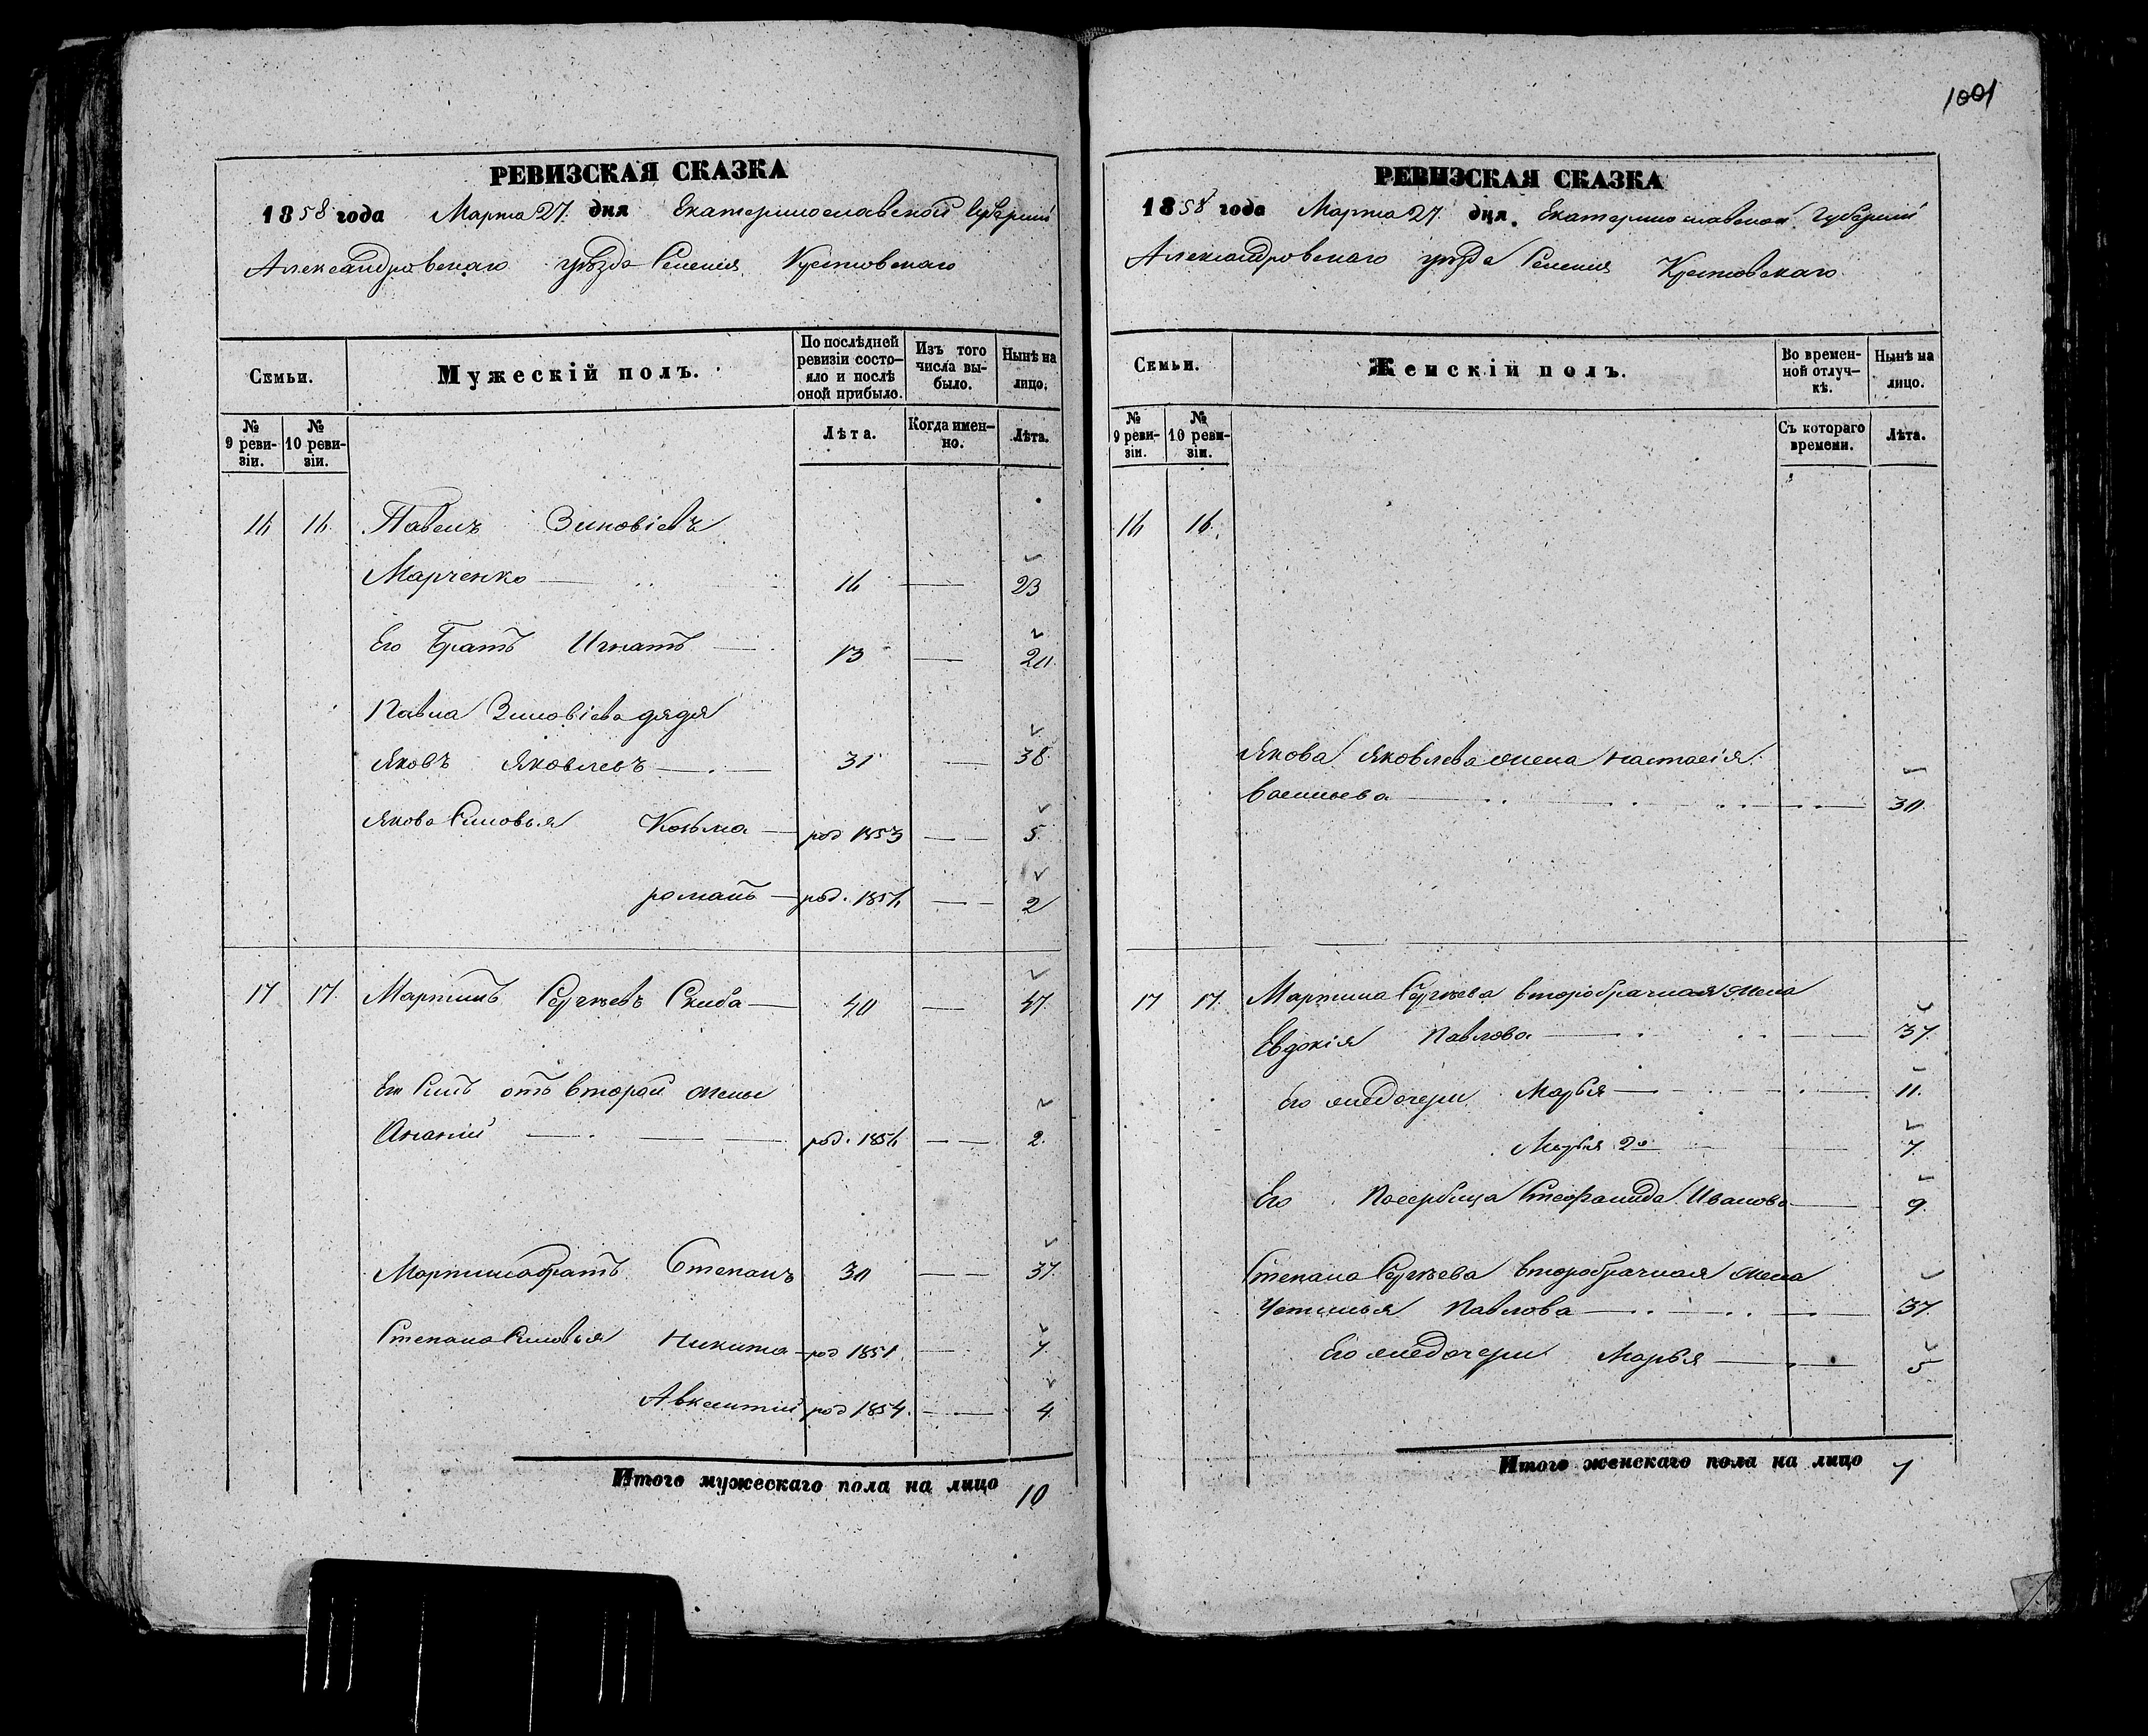 1001
РЕВИЗСКАЯ СКАЗКА
1858 года Марта 27. дня Екатеринославской Губерніи
Александровскаго уѣзда Селенія Крестовскаго
Семьи.
Мужескій полъ.
По послѣдней ревизіи состояло и послѣ оной прибыло.
Изъ того числа выбыло.
Нынѣ на лицо.
№ 9 ревизіи.
№ 10 ревизіи.
Лѣта.
Когда именно.
Лѣта.
16 16. Павелъ Зиновіевъ
Марченко 16 23
Его Братъ Игнатъ 13 20.
Павла Зиновіева дядя
Яковъ Яковлевъ 31 38.
Якова Сыновья Козьма род 1853 5.
романъ род. 1856 2
17 17. Мартинъ Сергѣевъ Скиба 40 47.
Его Сынъ отъ второй жены
Ананій род. 1856 2.
Мартина братъ Степанъ 30 37.
Степана Сыновья Никита род 1851. 7.
Авксентій род 1854. 4.
Итого мужескаго пола на лицо 10
РЕВИЗСКАЯ СКАЗКА
1858 года Марта 27. дня. Екатеринославской Губерніи
Александровскаго уѣзда Селенія Крестовскаго.
Семьи.
Женскій полъ.
Во временной отлучкѣ.
Нынѣ на лицо.
№ 9 ревизіи.
№ 10 ревизіи.
Съ котораго времени.
Лѣта.
16 16.
Якова Яковлева жена Настасія
Васильева 30.
17 17. Мартина Сергѣева второбрачная жена
Евдокія Павлова 37.
Его жедочери Марья 11.
Марья 2я 7.
Его Пасербица Стефанида Иванова 9.
Степана Сергѣева второбрачная жена
Устинья Павлова 37.
Его жедочери Марья 5
Итого женскаго пола на лицо 7